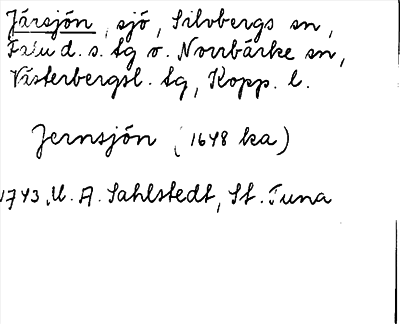 Järsjön, sjö, Silvbergs sn,
Falu d. s. tg o. Norrbärke sn,
Västerbergsl. tg, Kopp. l.
Jernsjön (1648 ka)
1743, U. A. Sahlstedt, St. Tuna